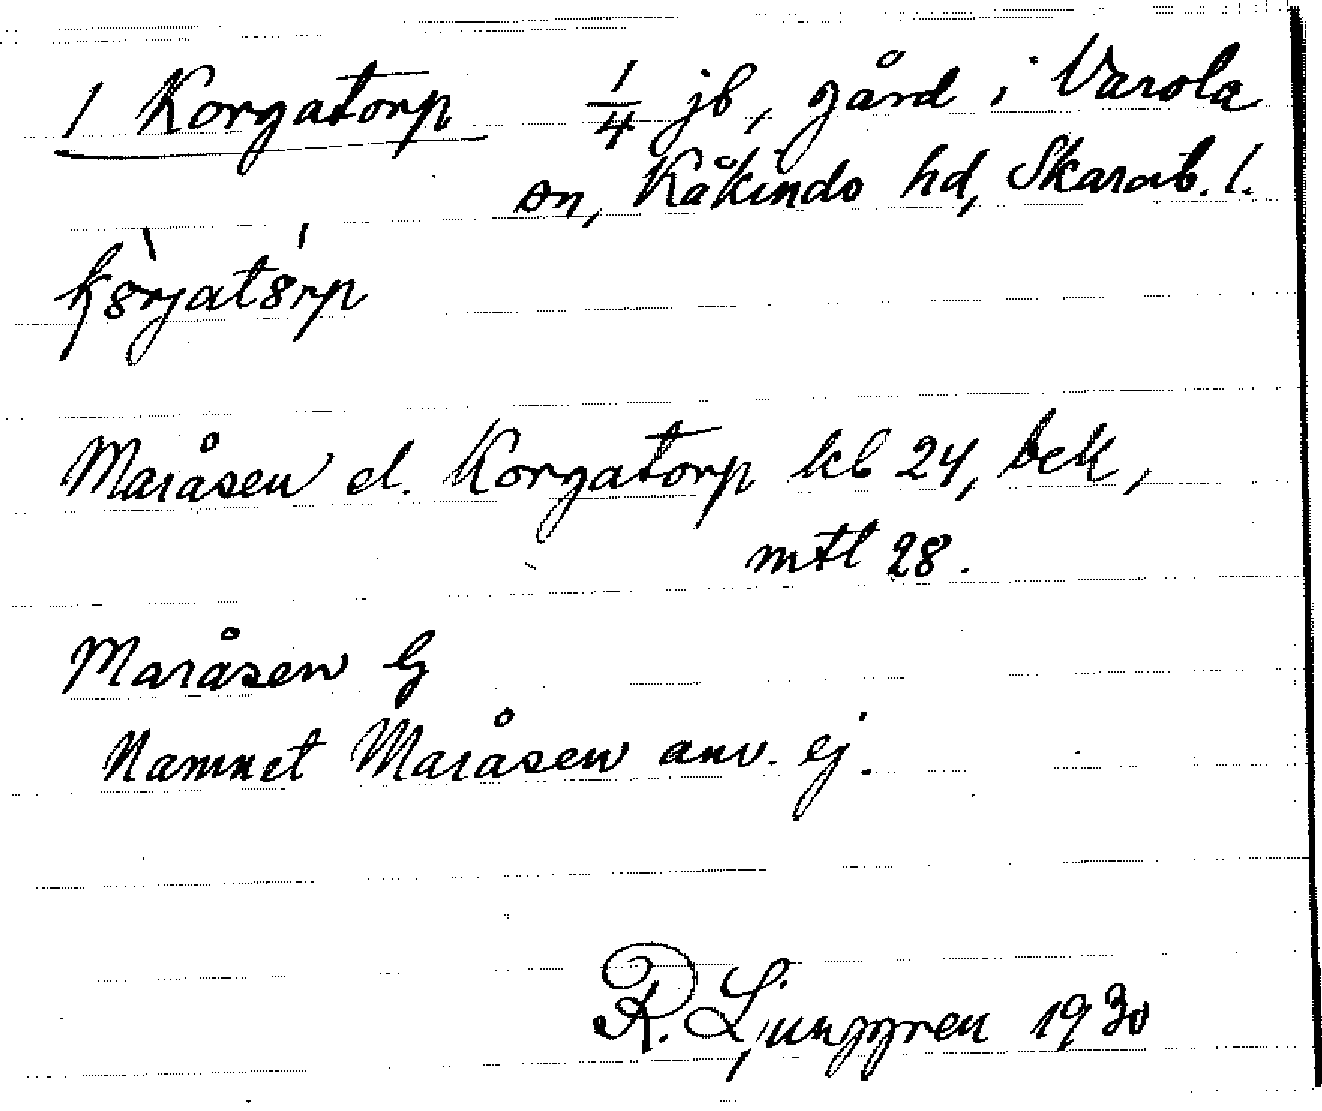 1 Korgatorp 1/4 jb, gård i Varola
sn, Kåkinds hd, Skarab. l.
kòrjatórp
Maråsen el. Korgatorp kb 24, bek,
mtl 28.
Maråsen G
Namnet Maråsen anv. ej.
R. Ljunggren 1930